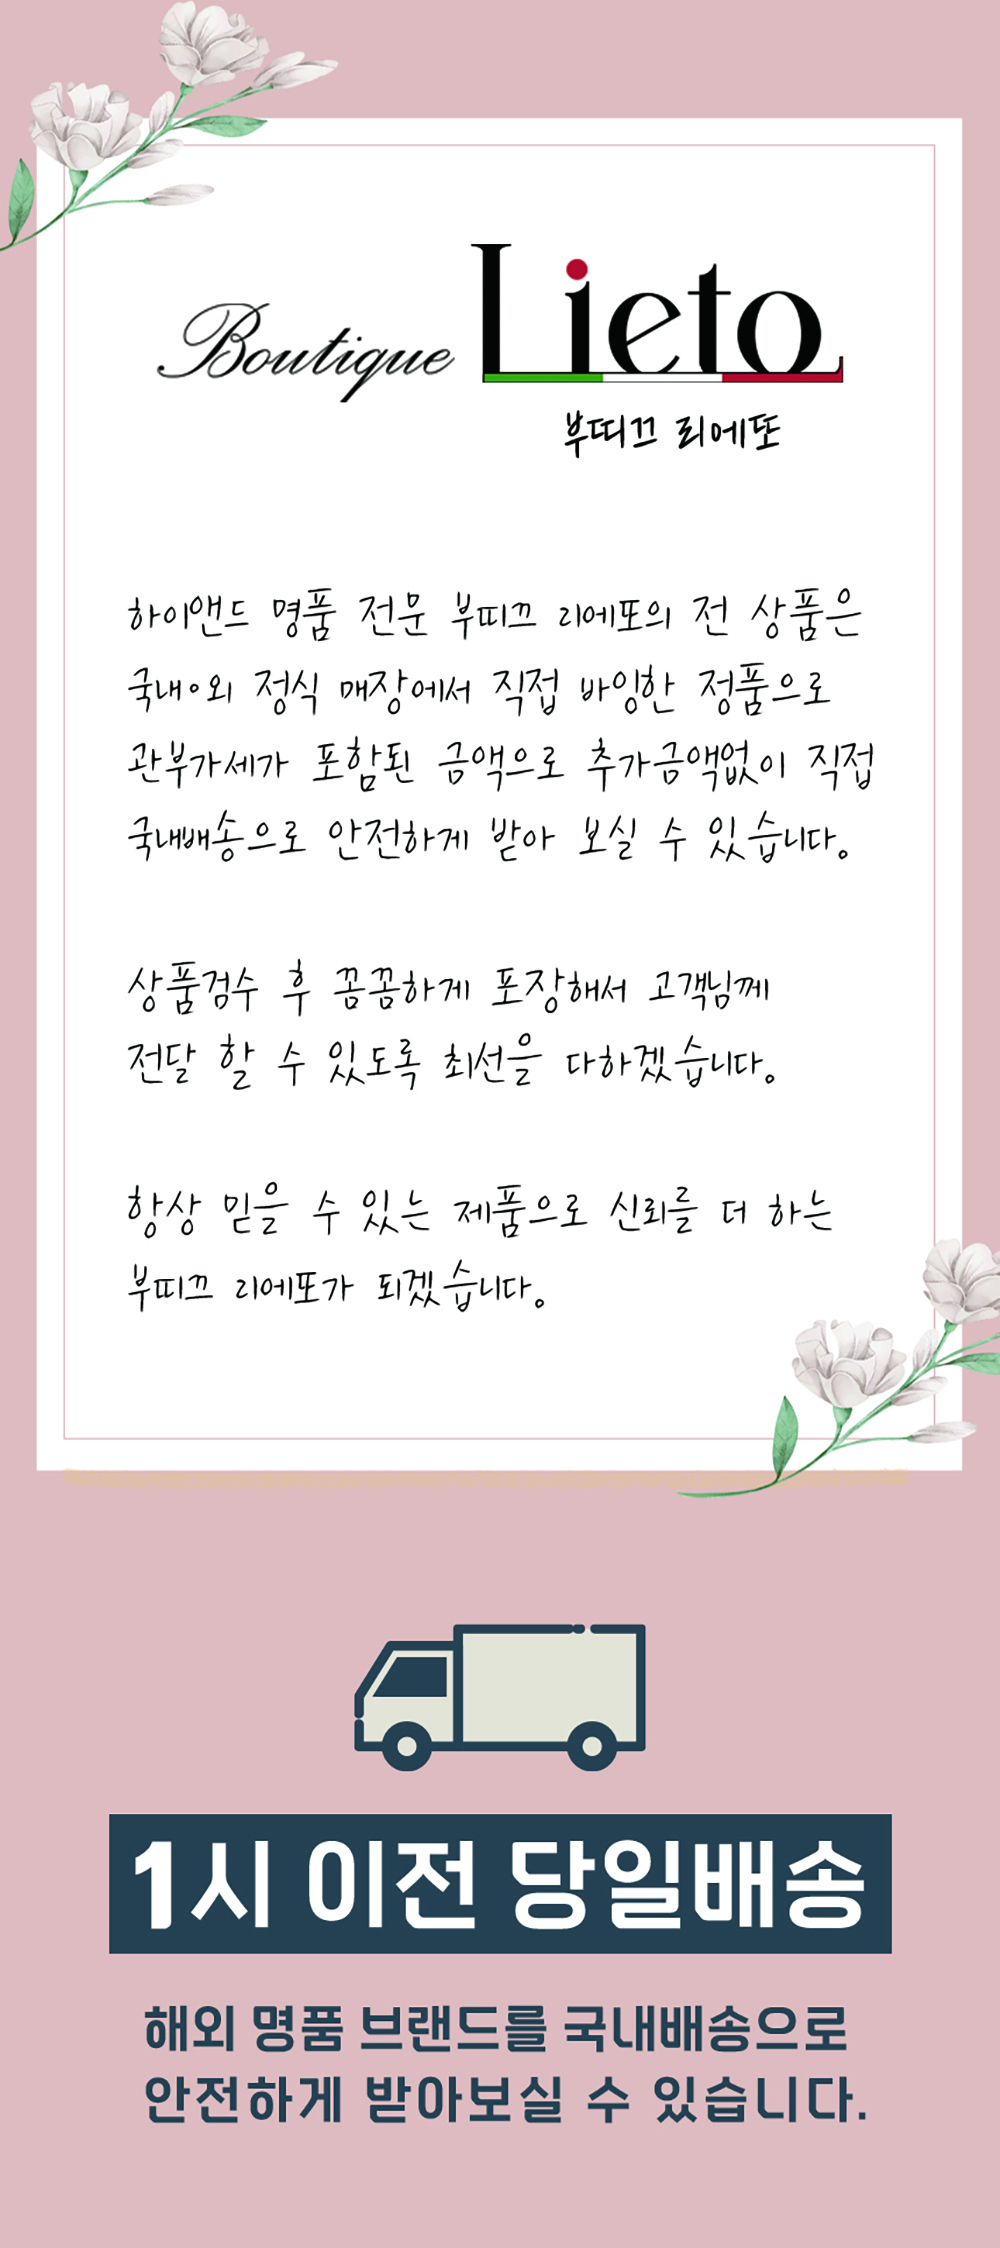 Boutique Lieto
부띠끄 리에또
하이앤드 명품 전문 부띠끄 리에또의 전 상품은
국내∘외 정식 매장에서 직접 바잉한 정품으로
관부가세가 포함된 금액으로 추가금액없이 직접
국내배송으로 안전하게 받아 보실 수 있습니다.
상품검수 후 꼼꼼하게 포장해서 고객님께
전달 할 수 있도록 최선을 다하겠습니다.
항상 믿을 수 있는 제품으로 신뢰를 더 하는
부띠끄 리에또가 되겠습니다.
1시 이전 당일배송
해외 명품 브랜드를 국내배송으로
안전하게 받아보실 수 있습니다.